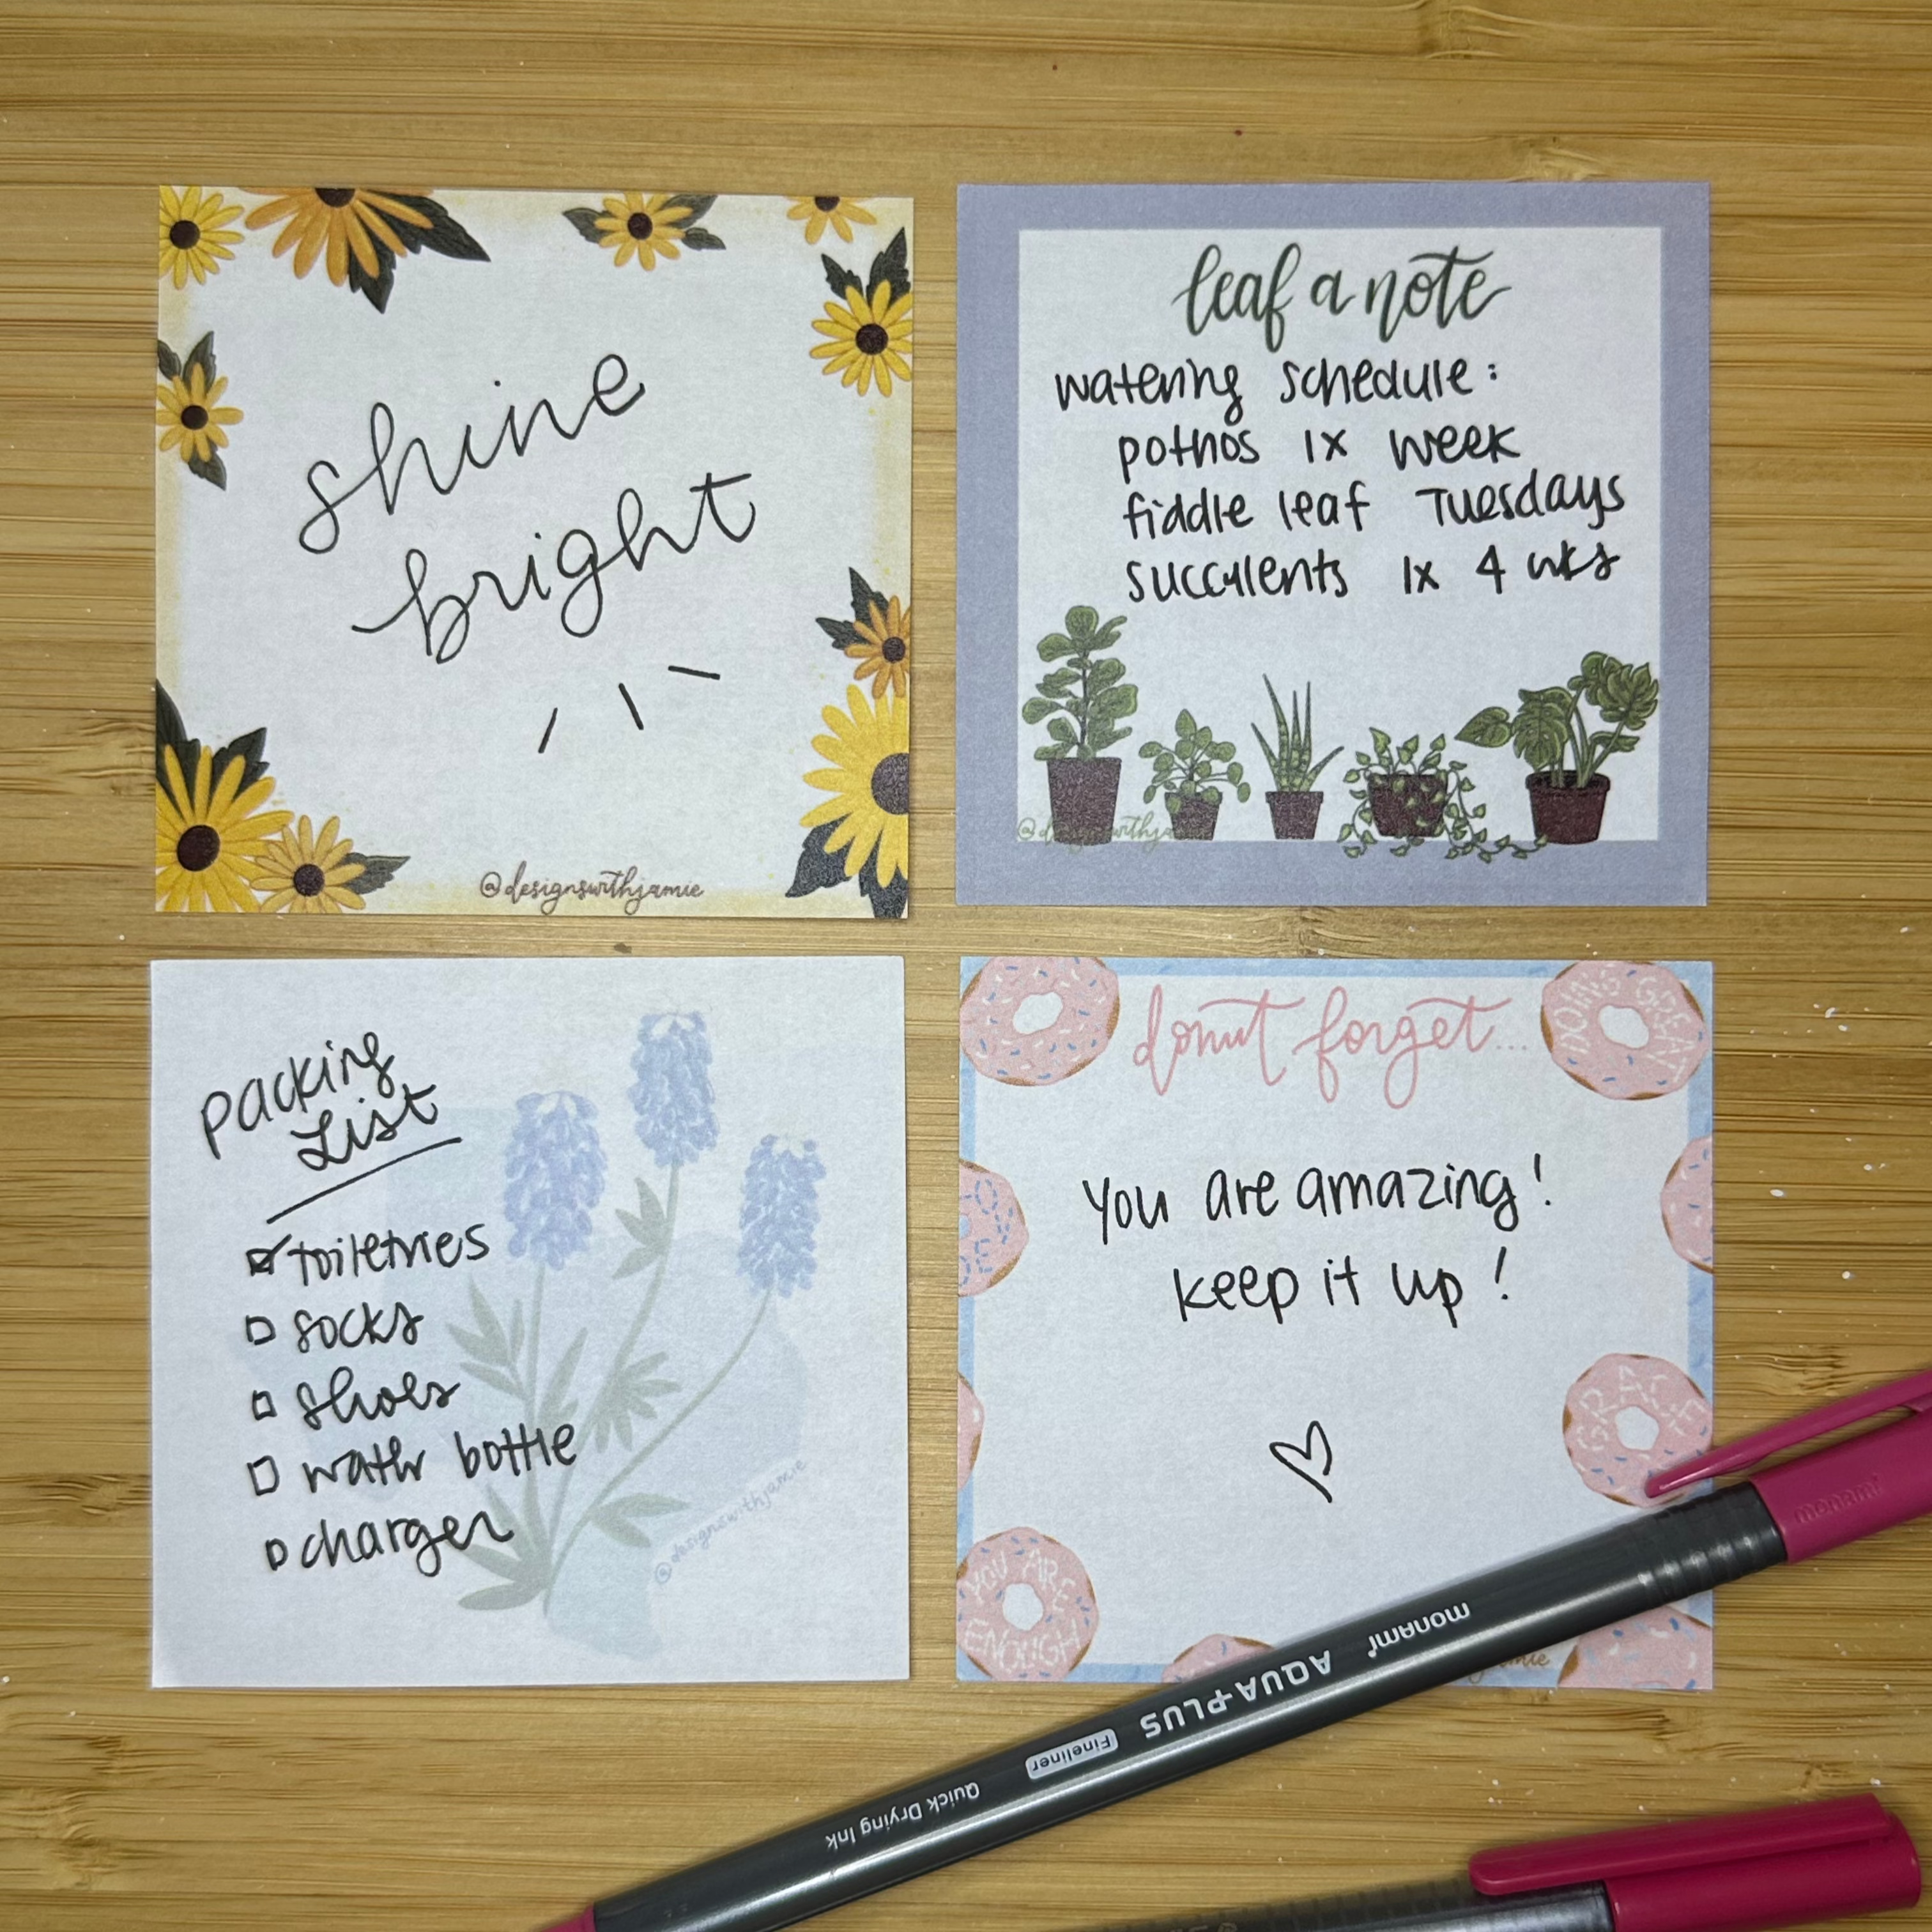 shine
bright
@designswithjamie
leaf a note
watering schedule:
pothos 1x week
fiddle leaf Tuesdays
succulents 1x 4 wks
packing
List
toiletries
socks
shoes
water bottle
charger
@designswithjamie
donut forget...
DOING GREAT
You are amazing!
keep it up!
GRACE
YOU ARE
ENOUGH
monami
monami
AQUA-PLUS
Fineliner
Quick Drying Ink